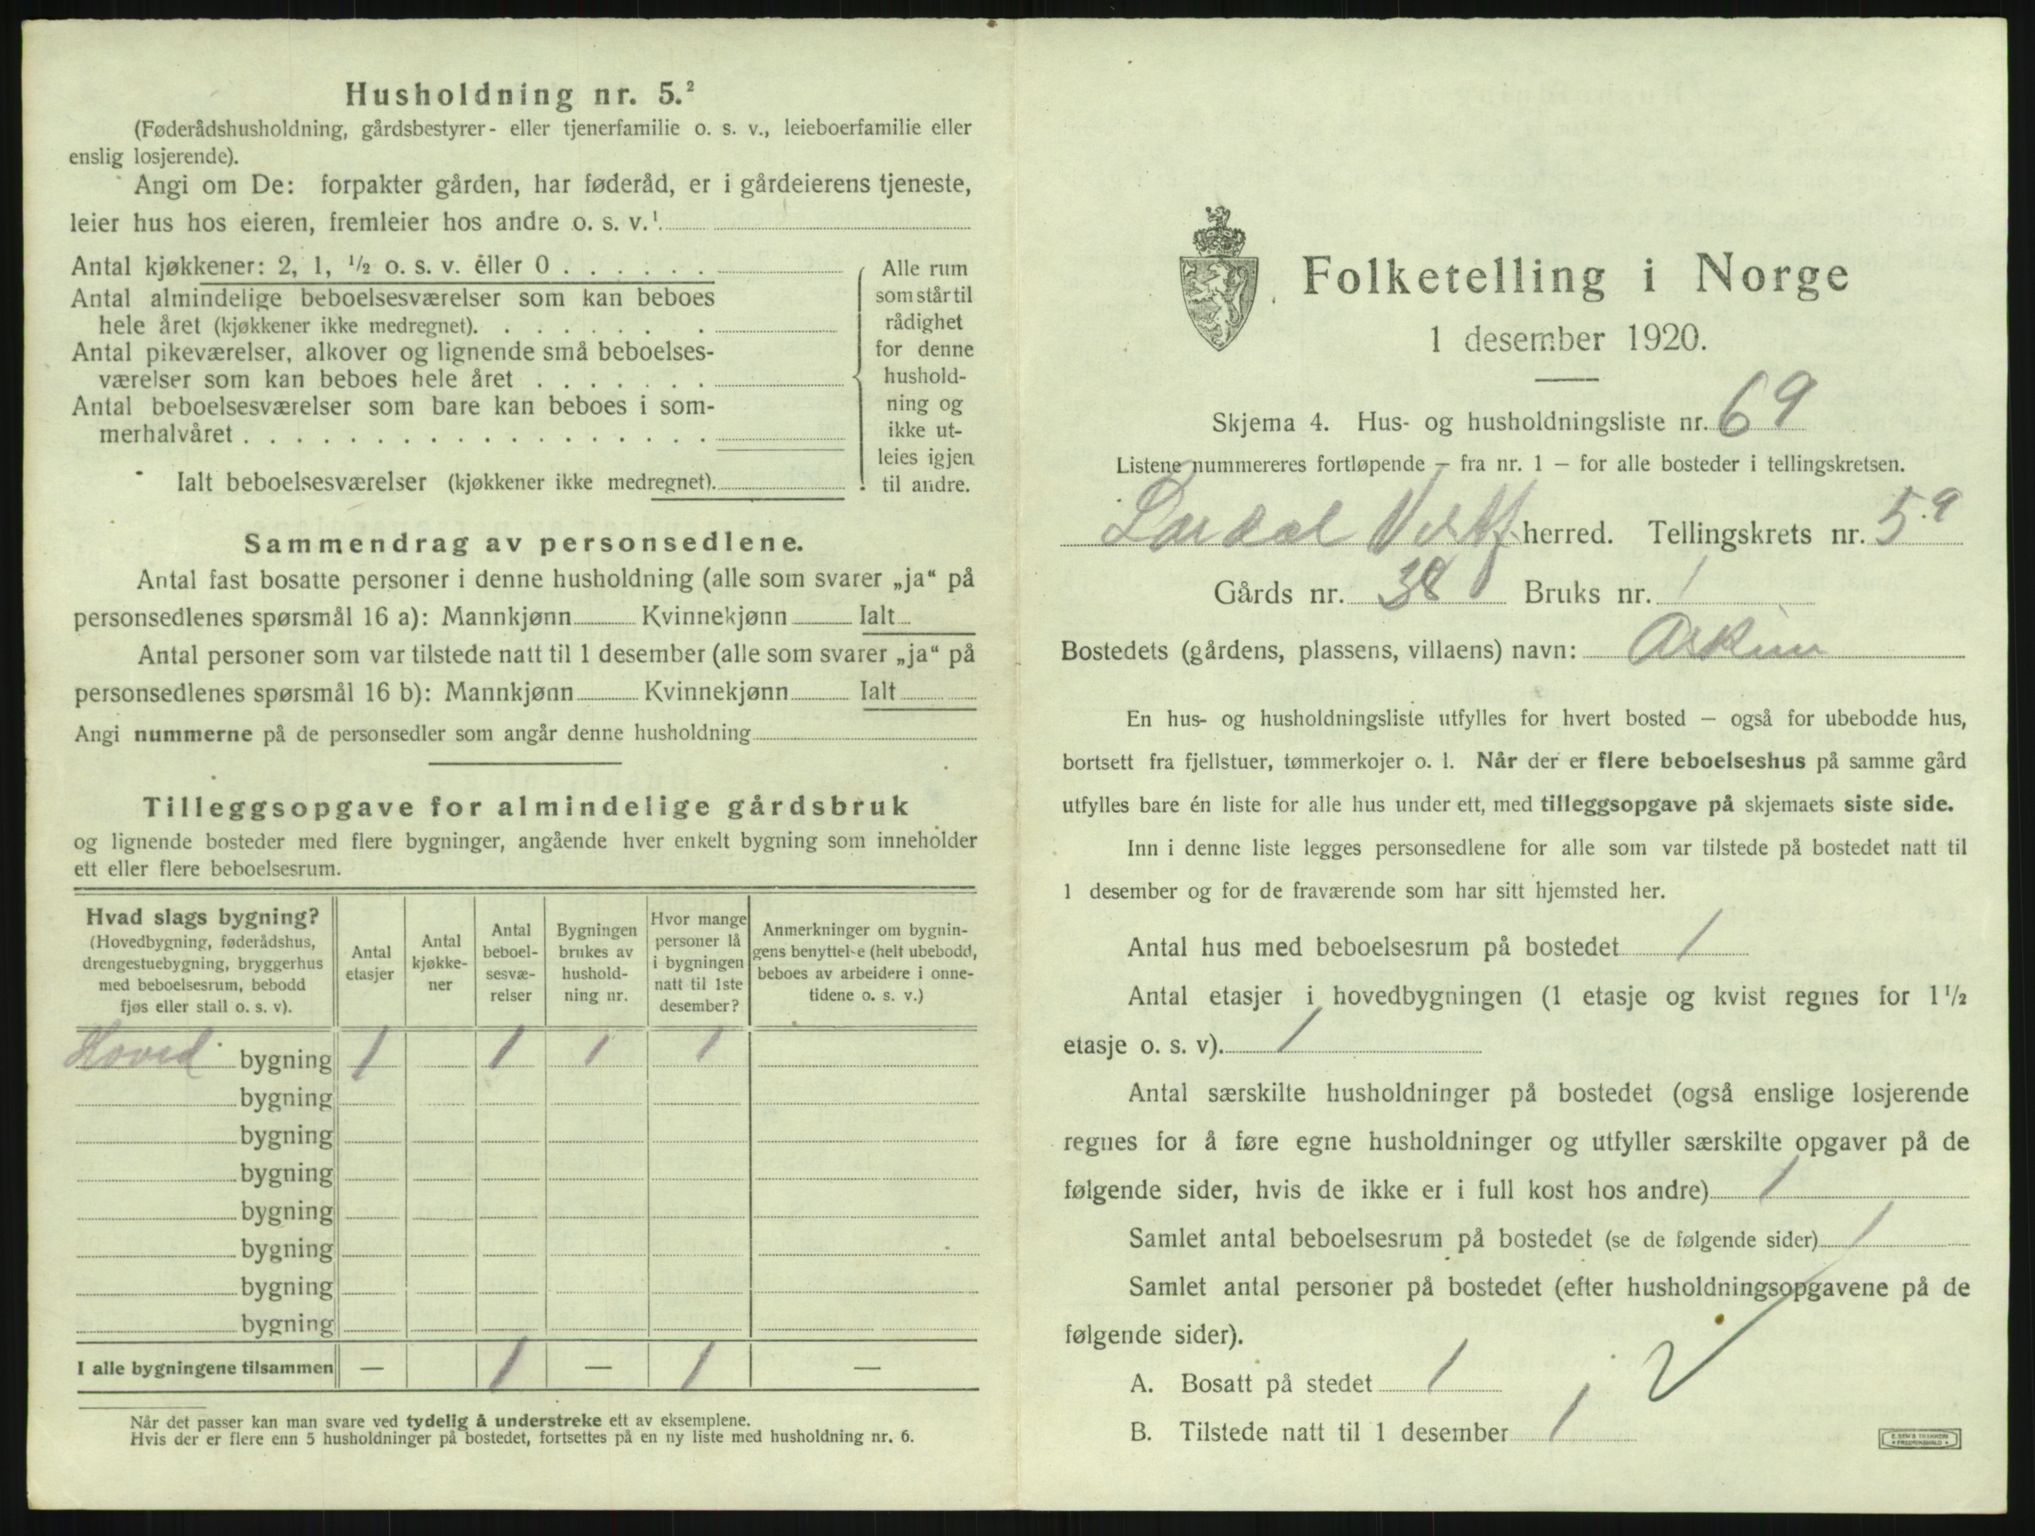 Husholdning nr. 5.²
(Føderådshusholdning, gårdsbestyrer- eller tjenerfamilie o. s. v., leieboerfamilie eller
enslig losjerende).
Angi om De: forpakter gården, har føderåd, er i gårdeierens tjeneste,
leier hus hos eieren, fremleier hos andre o. s. v.¹
Antal kjøkkener: 2, 1, ½ o. s. v. eller 0 . . . . . .
Antal almindelige beboelsesværelser som kan beboes
hele året (kjøkkener ikke medregnet). . . . . . . .
Antal pikeværelser, alkover og lignende små beboelses-
værelser som kan beboes hele året . . . . . . .
Antal beboelsesværelser som bare kan beboes i som-
merhalvåret . . . . . . . . . . . . . . . . . .
Ialt beboelsesværelser (kjøkkener ikke medregnet).
Alle rum
som står til
rådighet
for denne
hushold-
ning og
ikke ut-
leies igjen
til andre.
Sammendrag av personsedlene.
Antal fast bosatte personer i denne husholdning (alle som svarer „ja“ på
personsedlenes spørsmål 16 a): Mannkjønn Kvinnekjønn Ialt
Antal personer som var tilstede natt til 1 desember (alle som svarer „ja“ på
personsedlenes spørsmål 16 b): Mannkjønn Kvinnekjønn Ialt
Angi nummerne på de personsedler som angår denne husholdning
Tilleggsopgave for almindelige gårdsbruk
og lignende bosteder med flere bygninger, angående hver enkelt bygning som inneholder
ett eller flere beboelsesrum.
Hvad slags bygning?
(Hovedbygning, føderådshus,
drengestuebygning, bryggerhus
med beboelsesrum, bebodd
fjøs eller stall o. s. v).
Antal
etasjer
Antal
kjøkke-
ner
Antal
beboel-
sesvæ-
relser
Bygningen
brukes av
hushold-
ning nr.
Hvor mange
personer lå
i bygningen
natt til 1ste
desember?
Anmerkninger om bygnin-
gens benyttelse (helt ubebodd,
beboes av arbeidere i onne-
tidene o. s. v.)
Hoved bygning 1 1 1 1
bygning
bygning
bygning
bygning
bygning
bygning
bygning
I alle bygningene tilsammen — 1 — 1 —
Når det passer kan man svare ved tydelig å understreke ett av eksemplene.
Hvis der er flere enn 5 husholdninger på bostedet, fortsettes på en ny liste med husholdning nr. 6.
Folketelling i Norge
1 desember 1920.
Skjema 4. Hus- og husholdningsliste nr. 69
Listene nummereres fortløpende – fra nr. 1 – for alle bosteder i tellingskretsen.
Lardal herred. Tellingskrets nr. 5.a
Gårds nr. 38 Bruks nr. 1
Bostedets (gårdens, plassens, villaens) navn: Askim
En hus- og husholdningsliste utfylles for hvert bosted – også for ubebodde hus,
bortsett fra fjellstuer, tømmerkojer o. l. Når der er flere beboelseshus på samme gård
utfylles bare én liste for alle hus under ett, med tilleggsopgave på skjemaets siste side.
Inn i denne liste legges personsedlene for alle som var tilstede på bostedet natt til
1 desember og for de fraværende som har sitt hjemsted her.
Antal hus med beboelsesrum på bostedet 1
Antal etasjer i hovedbygningen (1 etasje og kvist regnes for 1½
etasje o. s. v). 1
Antal særskilte husholdninger på bostedet (også enslige losjerende
regnes for å føre egne husholdninger og utfyller særskilte opgaver på de
følgende sider, hvis de ikke er i full kost hos andre) 1
Samlet antal beboelsesrum på bostedet (se de følgende sider) 1
Samlet antal personer på bostedet (efter husholdningsopgavene på de
følgende sider).
A. Bosatt på stedet 1
B. Tilstede natt til 1 desember 1